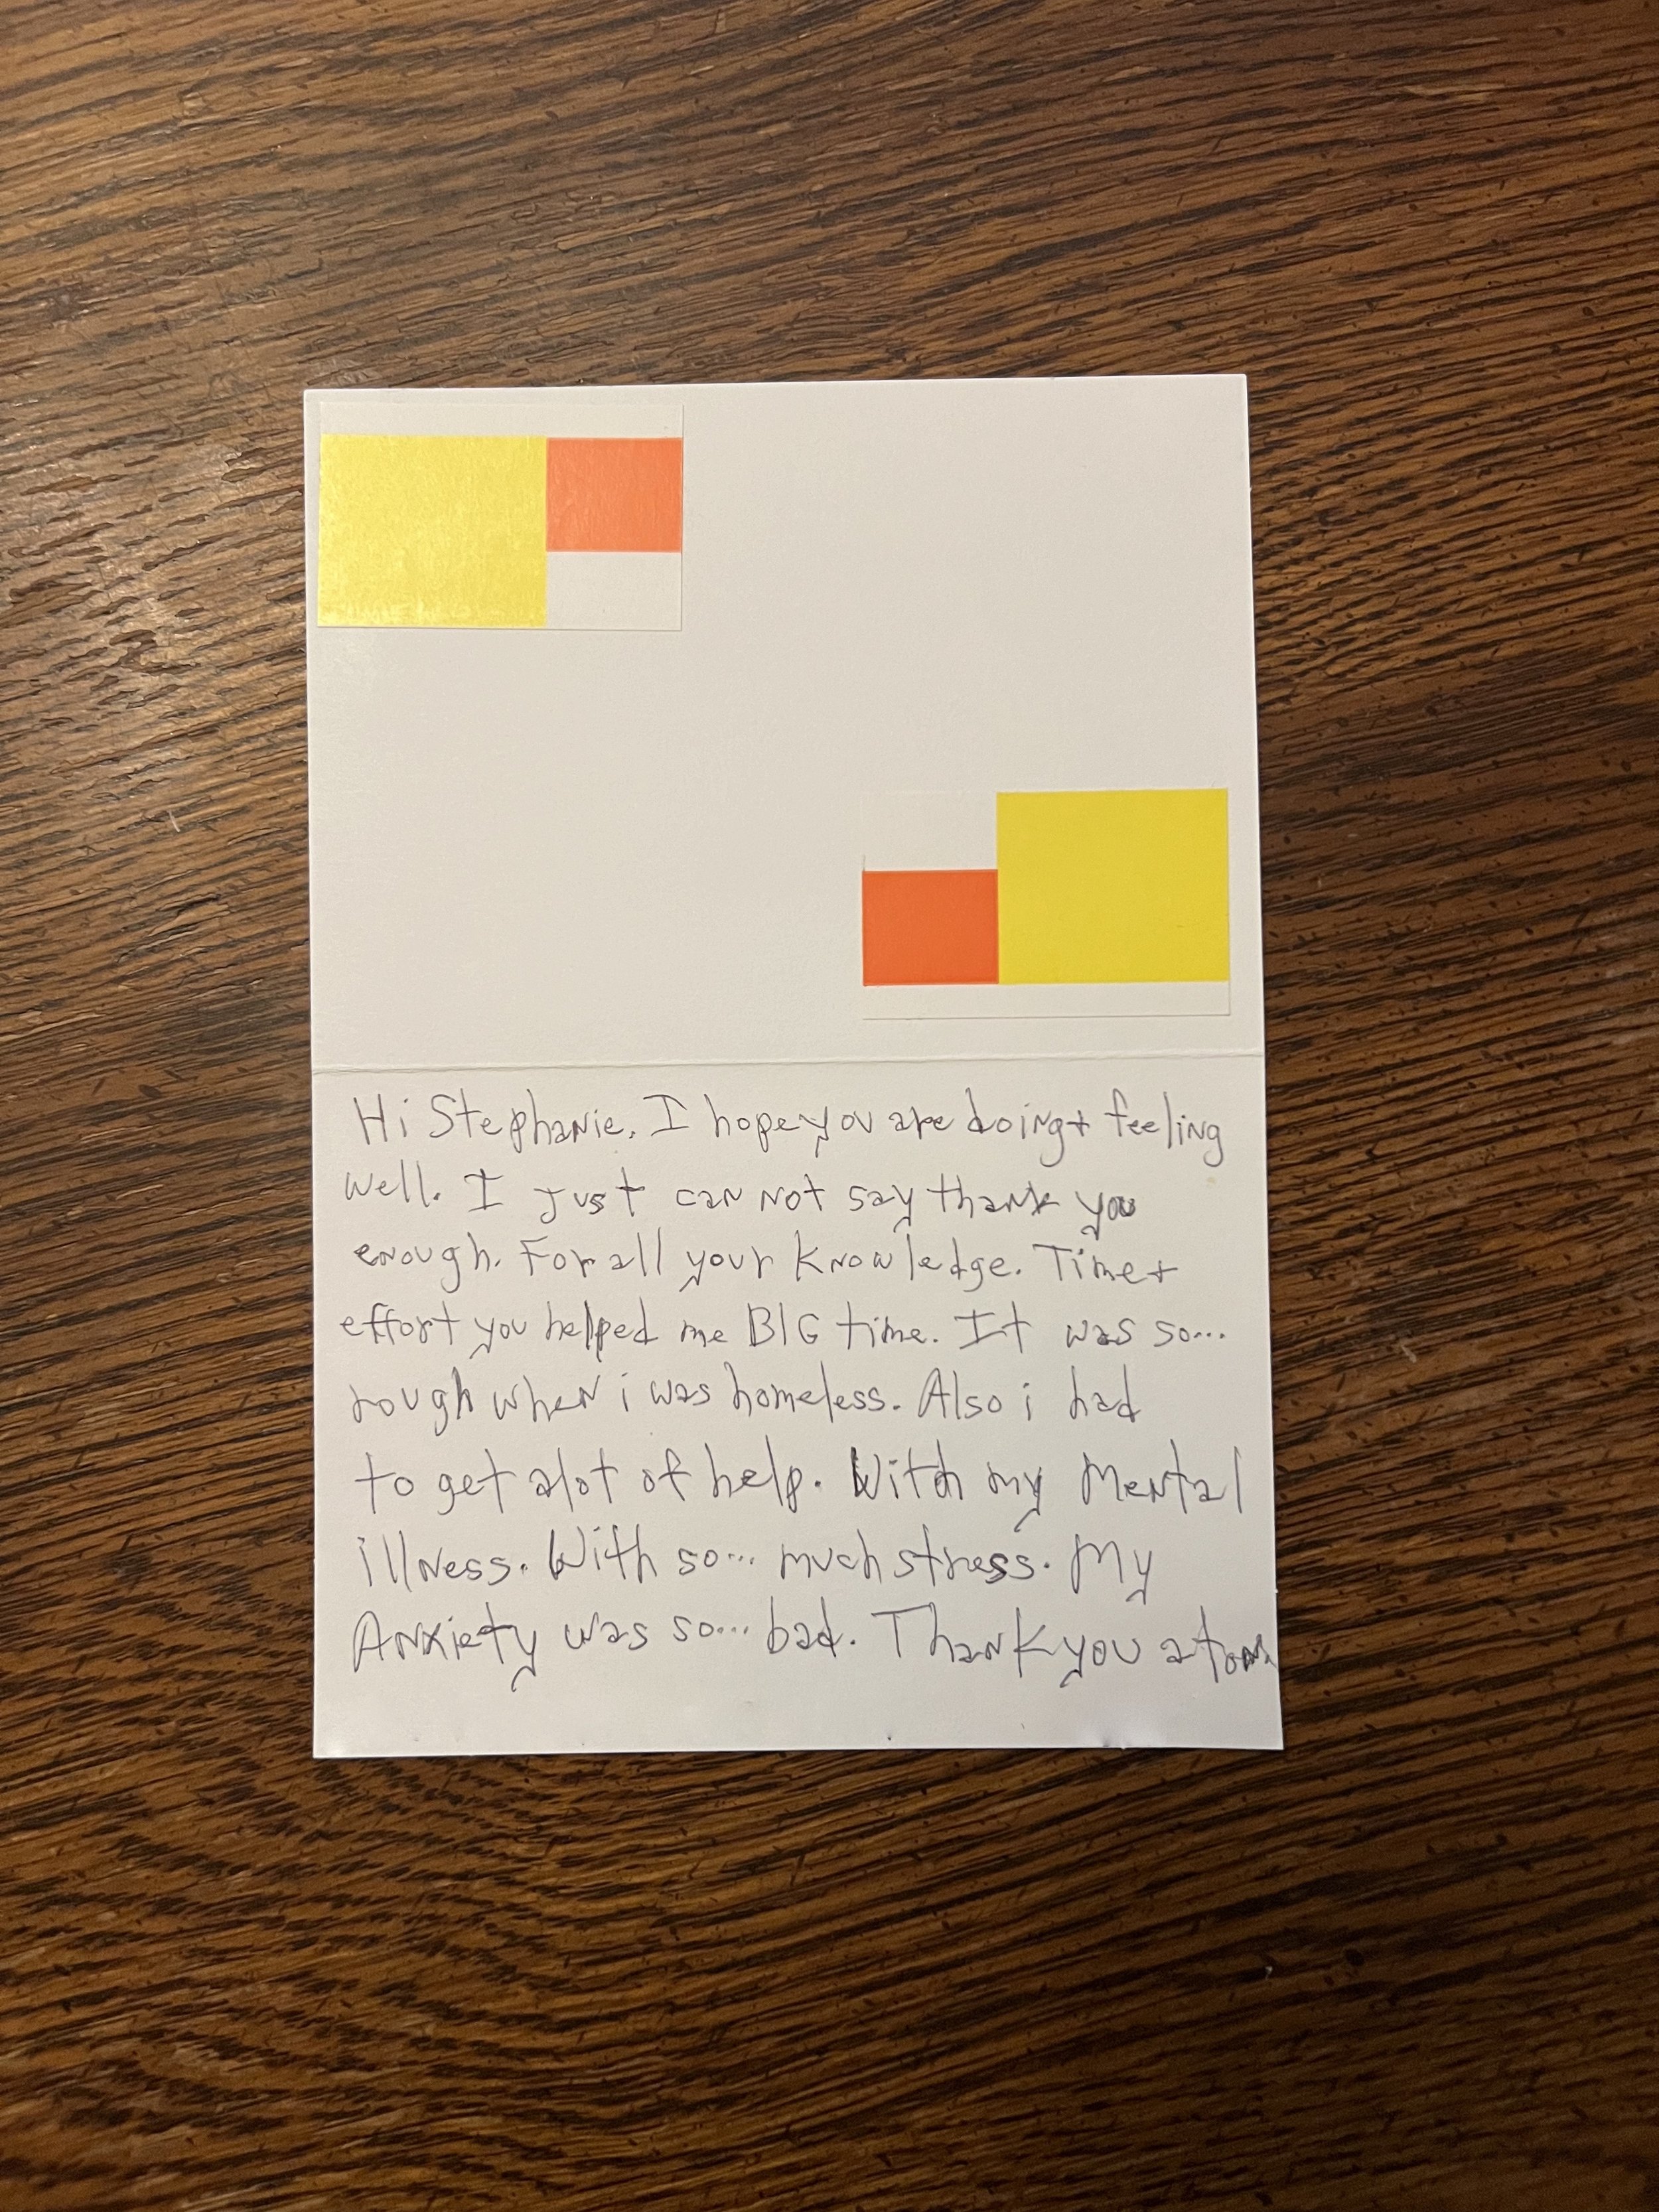 Hi Stephanie. I hope you are doing + feeling
well. I just can not say thank you
enough. For all your knowledge. Time +
effort you helped me BIG time. It was so...
rough when i was homeless. Also i had
to get alot of help. With my Mental
illness. With so... much stress. My
Anxiety was so... bad. Thank you a ton.